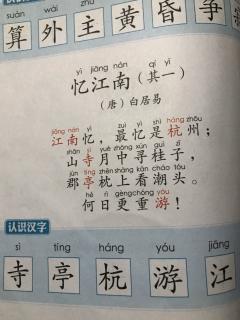 suàn wài zhǔ
算 外 主 黄 昏 争
yì jiāng nán qí yī
忆江南(其一)
(唐)白居易
jiāng nán yì zuì yì shì háng zhōu
江南忆，最忆是杭州；
shān sì yuè zhōng xún guì zǐ
山寺月中寻桂子，
jùn tíng zhěn shàng kàn cháo tóu
郡亭枕上看潮头。
hé rì gèng chóng yóu
何日更重游！
认识汉字
sì tíng háng yóu jiāng
寺 亭 杭 游 江